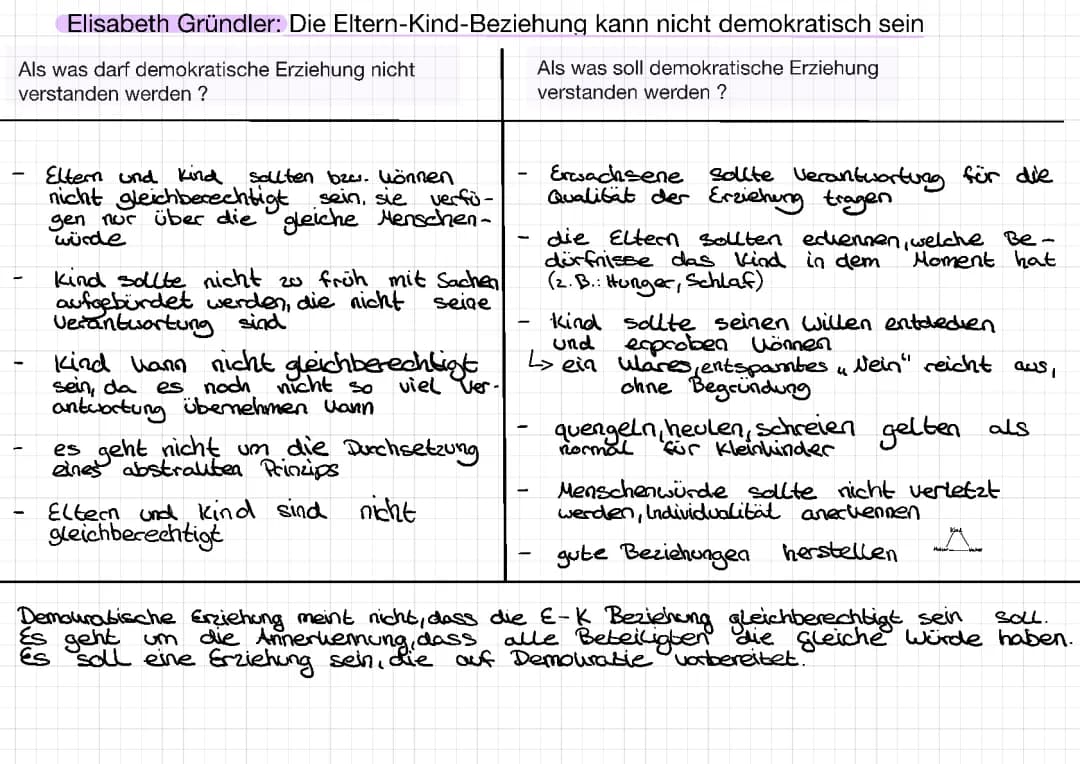 Elisabeth Gründler: Die Eltern-Kind-Beziehung kann nicht demokratisch sein
Als was darf demokratische Erziehung nicht
verstanden werden ?
- Eltern und Kind sollten bzw. können
nicht gleichberechtigt sein, sie verfü-
gen nur über die gleiche Menschen-
würde
- Kind sollte nicht zu früh mit Sachen
aufgebürdet werden, die nicht seine
Verantwortung sind
- Kind kann nicht gleichberechtigt
sein, da es noch nicht so viel Ver-
antwortung übernehmen kann
- es geht nicht um die Durchsetzung
eines abstrakten Prinzips
- Eltern und Kind sind nicht
gleichberechtigt
Als was soll demokratische Erziehung
verstanden werden ?
- Erwachsene sollte Verantwortung für die
Qualität der Erziehung tragen
- die Eltern sollten erkennen, welche Be-
dürfnisse das Kind in dem Moment hat
(z.B.: Hunger, Schlaf)
- Kind sollte seinen Willen entdecken
und erproben können
↳ ein klares, entspanntes „Nein" reicht aus,
ohne Begründung
- quengeln, heulen, schreien gelten als
normal für Kleinkinder
- Menschenwürde sollte nicht verletzt
werden, Individualität anerkennen
- gute Beziehungen herstellen
Kind
Demokratische Erziehung meint nicht, dass die E-K Beziehung gleichberechtigt sein soll.
Es geht um die Annerkennung, dass alle Beteiligten die gleiche Würde haben.
Es soll eine Erziehung sein, die auf Demokratie vorbereitet.